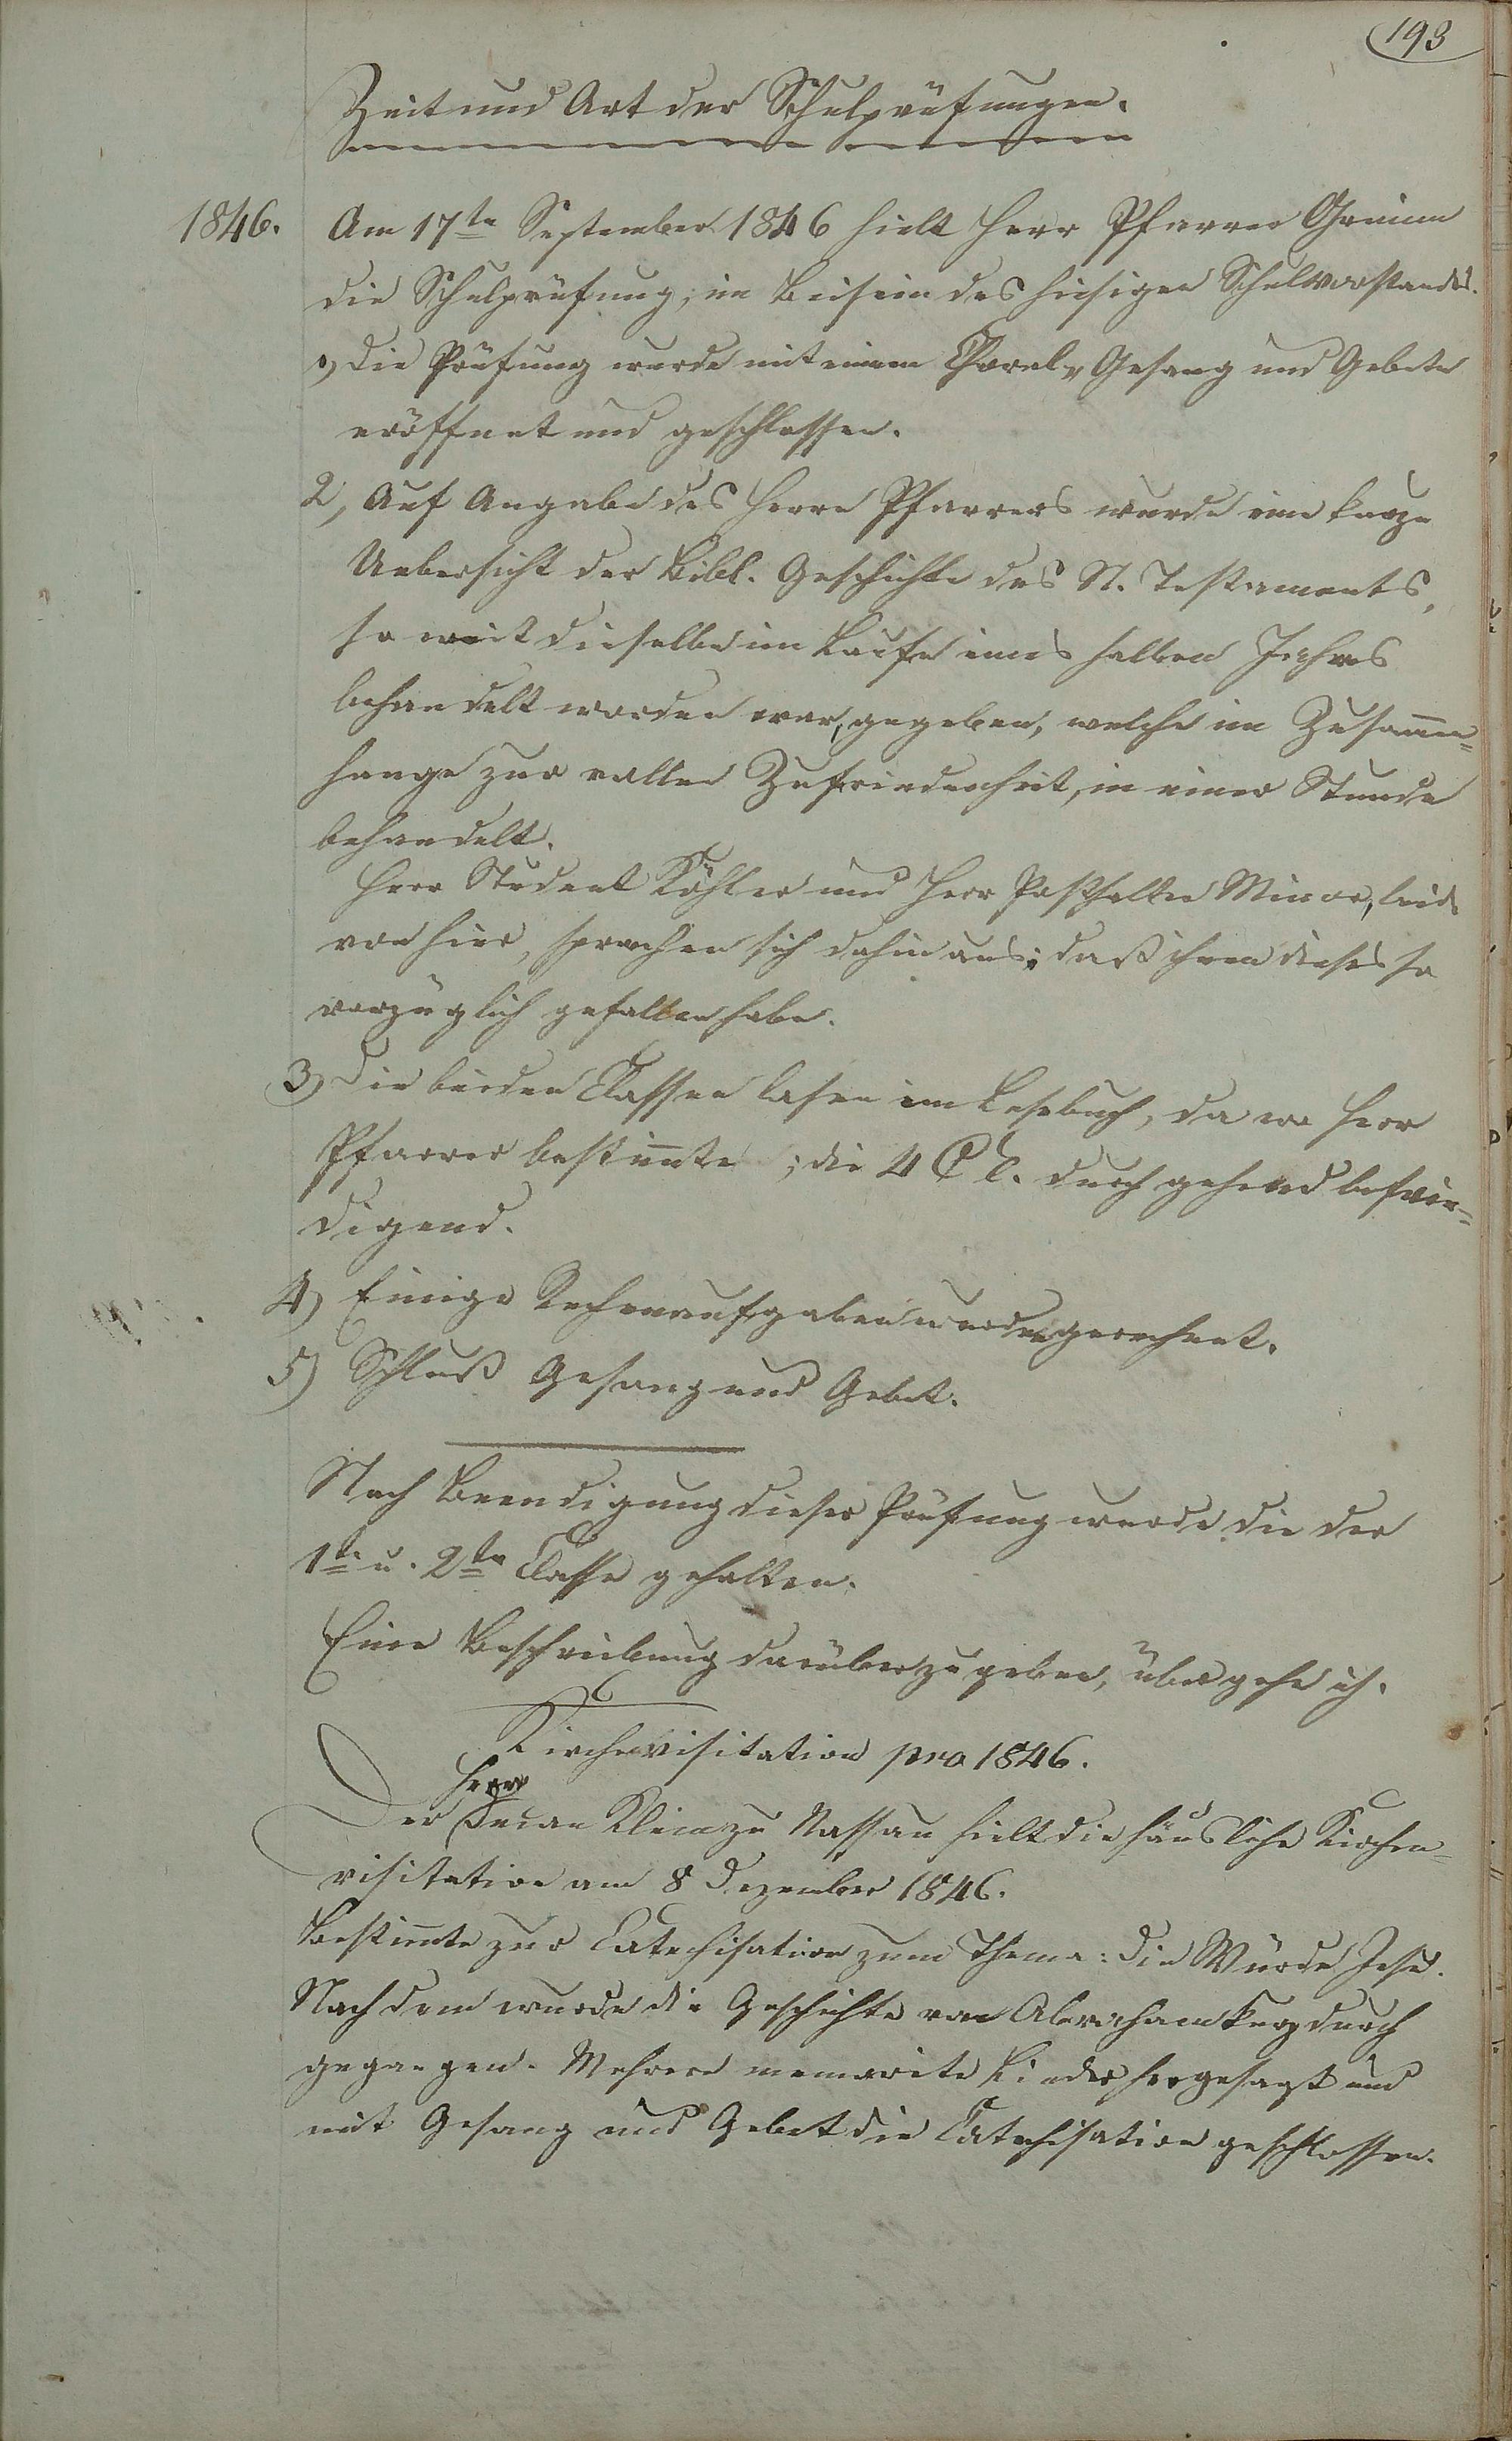 193
Zeit und Art der Schulprüfungen.
1846. Am 17ten September 1846 hielt Herr Pfarrer Grimm
die Schulprüfung, im Beisein des hiesigen Schulvorstandes.
1, Die Prüfung wurde mit einem Choral-Gesang und Gebete
eröffnet und geschlossen.
2, Auf Angabe des Herrn Pfarrers wurde eine kurze
Uebersicht der Bibl. Geschichte des N. Testaments,
so weit dieselbe im Laufe eines halben Jahres
behandelt worden war, gegeben, welche im Zusammen=
hange zur vollen Zufriedenheit, in einer Stunde
behandelt.
Herr Student Köhler und Herr Posthalter Minor, beide
von hier, sprachen sich dahin aus; daß ihnen dieses so
vorzüglich gefallen habe.
3, Die beiden Classen lasen im Lesebuch, da wo Herr
Pfarrer bestimmte; die 4 Cl. durch gehend befrie=
digend.
4) Einige Rechenaufgaben wurden gerechnet.
5) Schluß Gesang und Gebet.
Nach Beendigung dieser Prüfung wurde die der
1te u. 2ten Classe gehalten.
Eine Beschreibung darüber zu geben, über gehe ich.
Kirchenvisitation pro 1846.
Herr
Der Decan Klein zu Nassau hielt die häusliche Kirchen=
visitation am 8 Dezember 1846.
Bestimmte zur Catechisation zum Thema: Die Würde Jesu.
Nach dem wurde die Geschichte von Abraham kurz durch
gegangen. Mehrere memorirte Lieder hergesagt und
mit Gesang und Gebet die Catechisation geschlossen.